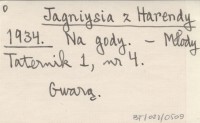 Jagniysia z Harendy
1934. Na gody. – Młody
Taternik 1, nr 4.
Gwarą.